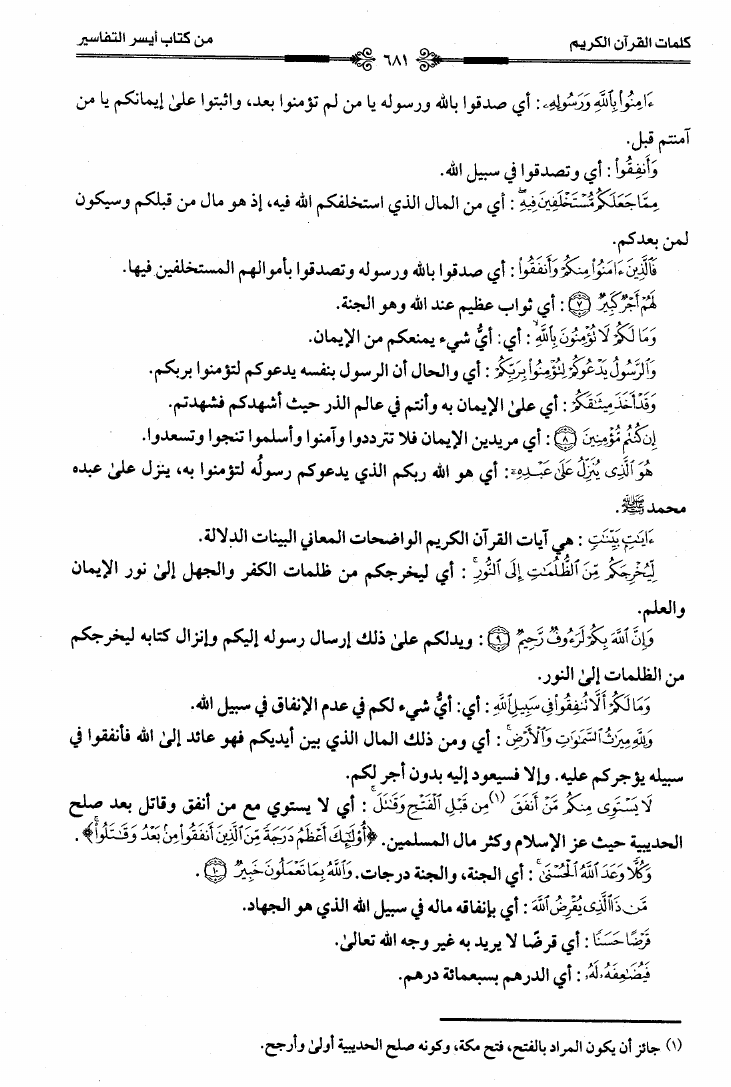 كلمات القرآن الكريم
٦٨١
من كتاب أيسر التفاسير
ءَامِنُواْ بِٱللَّهِ وَرَسُولِهِۦ : أي صدقوا بالله ورسوله يا من لم تؤمنوا بعد، واثبتوا علىٰ إيمانكم يا من
آمنتم قبل.
وَأَنفِقُواْ : أي وتصدقوا في سبيل الله.
مِمَّا جَعَلَكُم مُّسۡتَخۡلَفِينَ فِيهِۖ : أي من المال الذي استخلفكم الله فيه، إذ هو مال من قبلكم وسيكون
لمن بعدكم.
فَٱلَّذِينَ ءَامَنُواْ مِنكُمۡ وَأَنفَقُواْ : أي صدقوا بالله ورسوله وتصدقوا بأموالهم المستخلفين فيها.
لَهُمۡ أَجۡرٞ كَبِيرٞ ٧ : أي ثواب عظيم عند الله وهو الجنة.
وَمَا لَكُمۡ لَا تُؤۡمِنُونَ بِٱللَّهِ : أي: أيُّ شيء يمنعكم من الإيمان.
وَٱلرَّسُولُ يَدۡعُوكُمۡ لِتُؤۡمِنُواْ بِرَبِّكُمۡ : أي والحال أن الرسول بنفسه يدعوكم لتؤمنوا بربكم.
وَقَدۡ أَخَذَ مِيثَٰقَكُمۡ : أي علىٰ الإيمان به وأنتم في عالم الذر حيث أشهدكم فشهدتم.
إِن كُنتُم مُّؤۡمِنِينَ ٨ : أي مريدين الإيمان فلا تترددوا وآمنوا وأسلموا تنجوا وتسعدوا.
هُوَ ٱلَّذِي يُنَزِّلُ عَلَىٰ عَبۡدِهِۦٓ : أي هو الله ربكم الذي يدعوكم رسولُه لتؤمنوا به، ينزل علىٰ عبده
محمد ﷺ.
ءَايَٰتِۭ بَيِّنَٰتٖ : هي آيات القرآن الكريم الواضحات المعاني البينات الدلالة.
لِّيُخۡرِجَكُم مِّنَ ٱلظُّلُمَٰتِ إِلَى ٱلنُّورِۚ : أي ليخرجكم من ظلمات الكفر والجهل إلىٰ نور الإيمان
والعلم.
وَإِنَّ ٱللَّهَ بِكُمۡ لَرَءُوفٞ رَّحِيمٞ ٩ : ويدلكم علىٰ ذلك إرسال رسوله إليكم وإنزال كتابه ليخرجكم
من الظلمات إلىٰ النور.
وَمَا لَكُمۡ أَلَّا تُنفِقُواْ فِي سَبِيلِ ٱللَّهِ : أي: أيُّ شيء لكم في عدم الإنفاق في سبيل الله.
وَلِلَّهِ مِيرَٰثُ ٱلسَّمَٰوَٰتِ وَٱلۡأَرۡضِۚ : أي ومن ذلك المال الذي بين أيديكم فهو عائد إلىٰ الله فأنفقوا في
سبيله يؤجركم عليه. وإلا فسيعود إليه بدون أجر لكم.
لَا يَسۡتَوِي مِنكُم مَّنۡ أَنفَقَ (١) مِن قَبۡلِ ٱلۡفَتۡحِ وَقَٰتَلَۚ : أي لا يستوي مع من أنفق وقاتل بعد صلح
الحديبية حيث عز الإسلام وكثر مال المسلمين. ﴿أُوْلَٰٓئِكَ أَعۡظَمُ دَرَجَةٗ مِّنَ ٱلَّذِينَ أَنفَقُواْ مِنۢ بَعۡدُ وَقَٰتَلُواْۚ﴾ .
وَكُلّٗا وَعَدَ ٱللَّهُ ٱلۡحُسۡنَىٰۚ : أي الجنة، والجنة درجات. وَٱللَّهُ بِمَا تَعۡمَلُونَ خَبِيرٞ ١٠ .
مَّن ذَا ٱلَّذِي يُقۡرِضُ ٱللَّهَ : أي بإنفاقه ماله في سبيل الله الذي هو الجهاد.
قَرۡضًا حَسَنٗا : أي قرضًا لا يريد به غير وجه الله تعالىٰ.
فَيُضَٰعِفَهُۥ لَهُۥ : أي الدرهم بسبعمائة درهم.
(١) جائز أن يكون المراد بالفتح، فتح مكة، وكونه صلح الحديبية أولىٰ وأرجح.